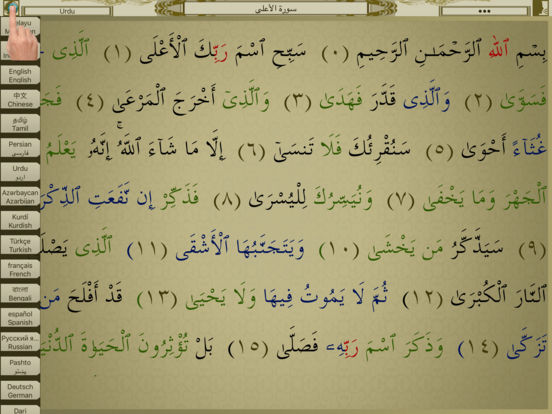 Urdu
سورة الأعلى
•••
elayu
English
English
中文
Chinese
தமிழ்
Tamil
Persian
فارسی
Urdu
اردو
Azərbaycan
Azarbijan
Kurdî
Kurdish
Türkçe
Turkish
français
French
বাংলা
Bengali
español
Spanish
Русский я...
Russian
Pashto
پښتو
Deutsch
German
Dari
بِسْمِ ٱللَّهِ ٱلرَّحْمَـٰنِ ٱلرَّحِيمِ (٠) سَبِّحِ ٱسْمَ رَبِّكَ ٱلْأَعْلَى (١) ٱلَّذِى
فَسَوَّىٰ (٢) وَٱلَّذِى قَدَّرَ فَهَدَىٰ (٣) وَٱلَّذِىٓ أَخْرَجَ ٱلْمَرْعَىٰ (٤) فَجَ
غُثَآءً أَحْوَىٰ (٥) سَنُقْرِئُكَ فَلَا تَنسَىٰٓ (٦) إِلَّا مَا شَآءَ ٱللَّهُ ۚ إِنَّهُۥ يَعْلَمُ
ٱلْجَهْرَ وَمَا يَخْفَىٰ (٧) وَنُيَسِّرُكَ لِلْيُسْرَىٰ (٨) فَذَكِّرْ إِن نَّفَعَتِ ٱلذِّكْرَ
(٩) سَيَذَّكَّرُ مَن يَخْشَىٰ (١٠) وَيَتَجَنَّبُهَا ٱلْأَشْقَى (١١) ٱلَّذِى يَصْلَ
ٱلنَّارَ ٱلْكُبْرَىٰ (١٢) ثُمَّ لَا يَمُوتُ فِيهَا وَلَا يَحْيَىٰ (١٣) قَدْ أَفْلَحَ مَن
تَزَكَّىٰ (١٤) وَذَكَرَ ٱسْمَ رَبِّهِۦ فَصَلَّىٰ (١٥) بَلْ تُؤْثِرُونَ ٱلْحَيَوٰةَ ٱلدُّنْيَ